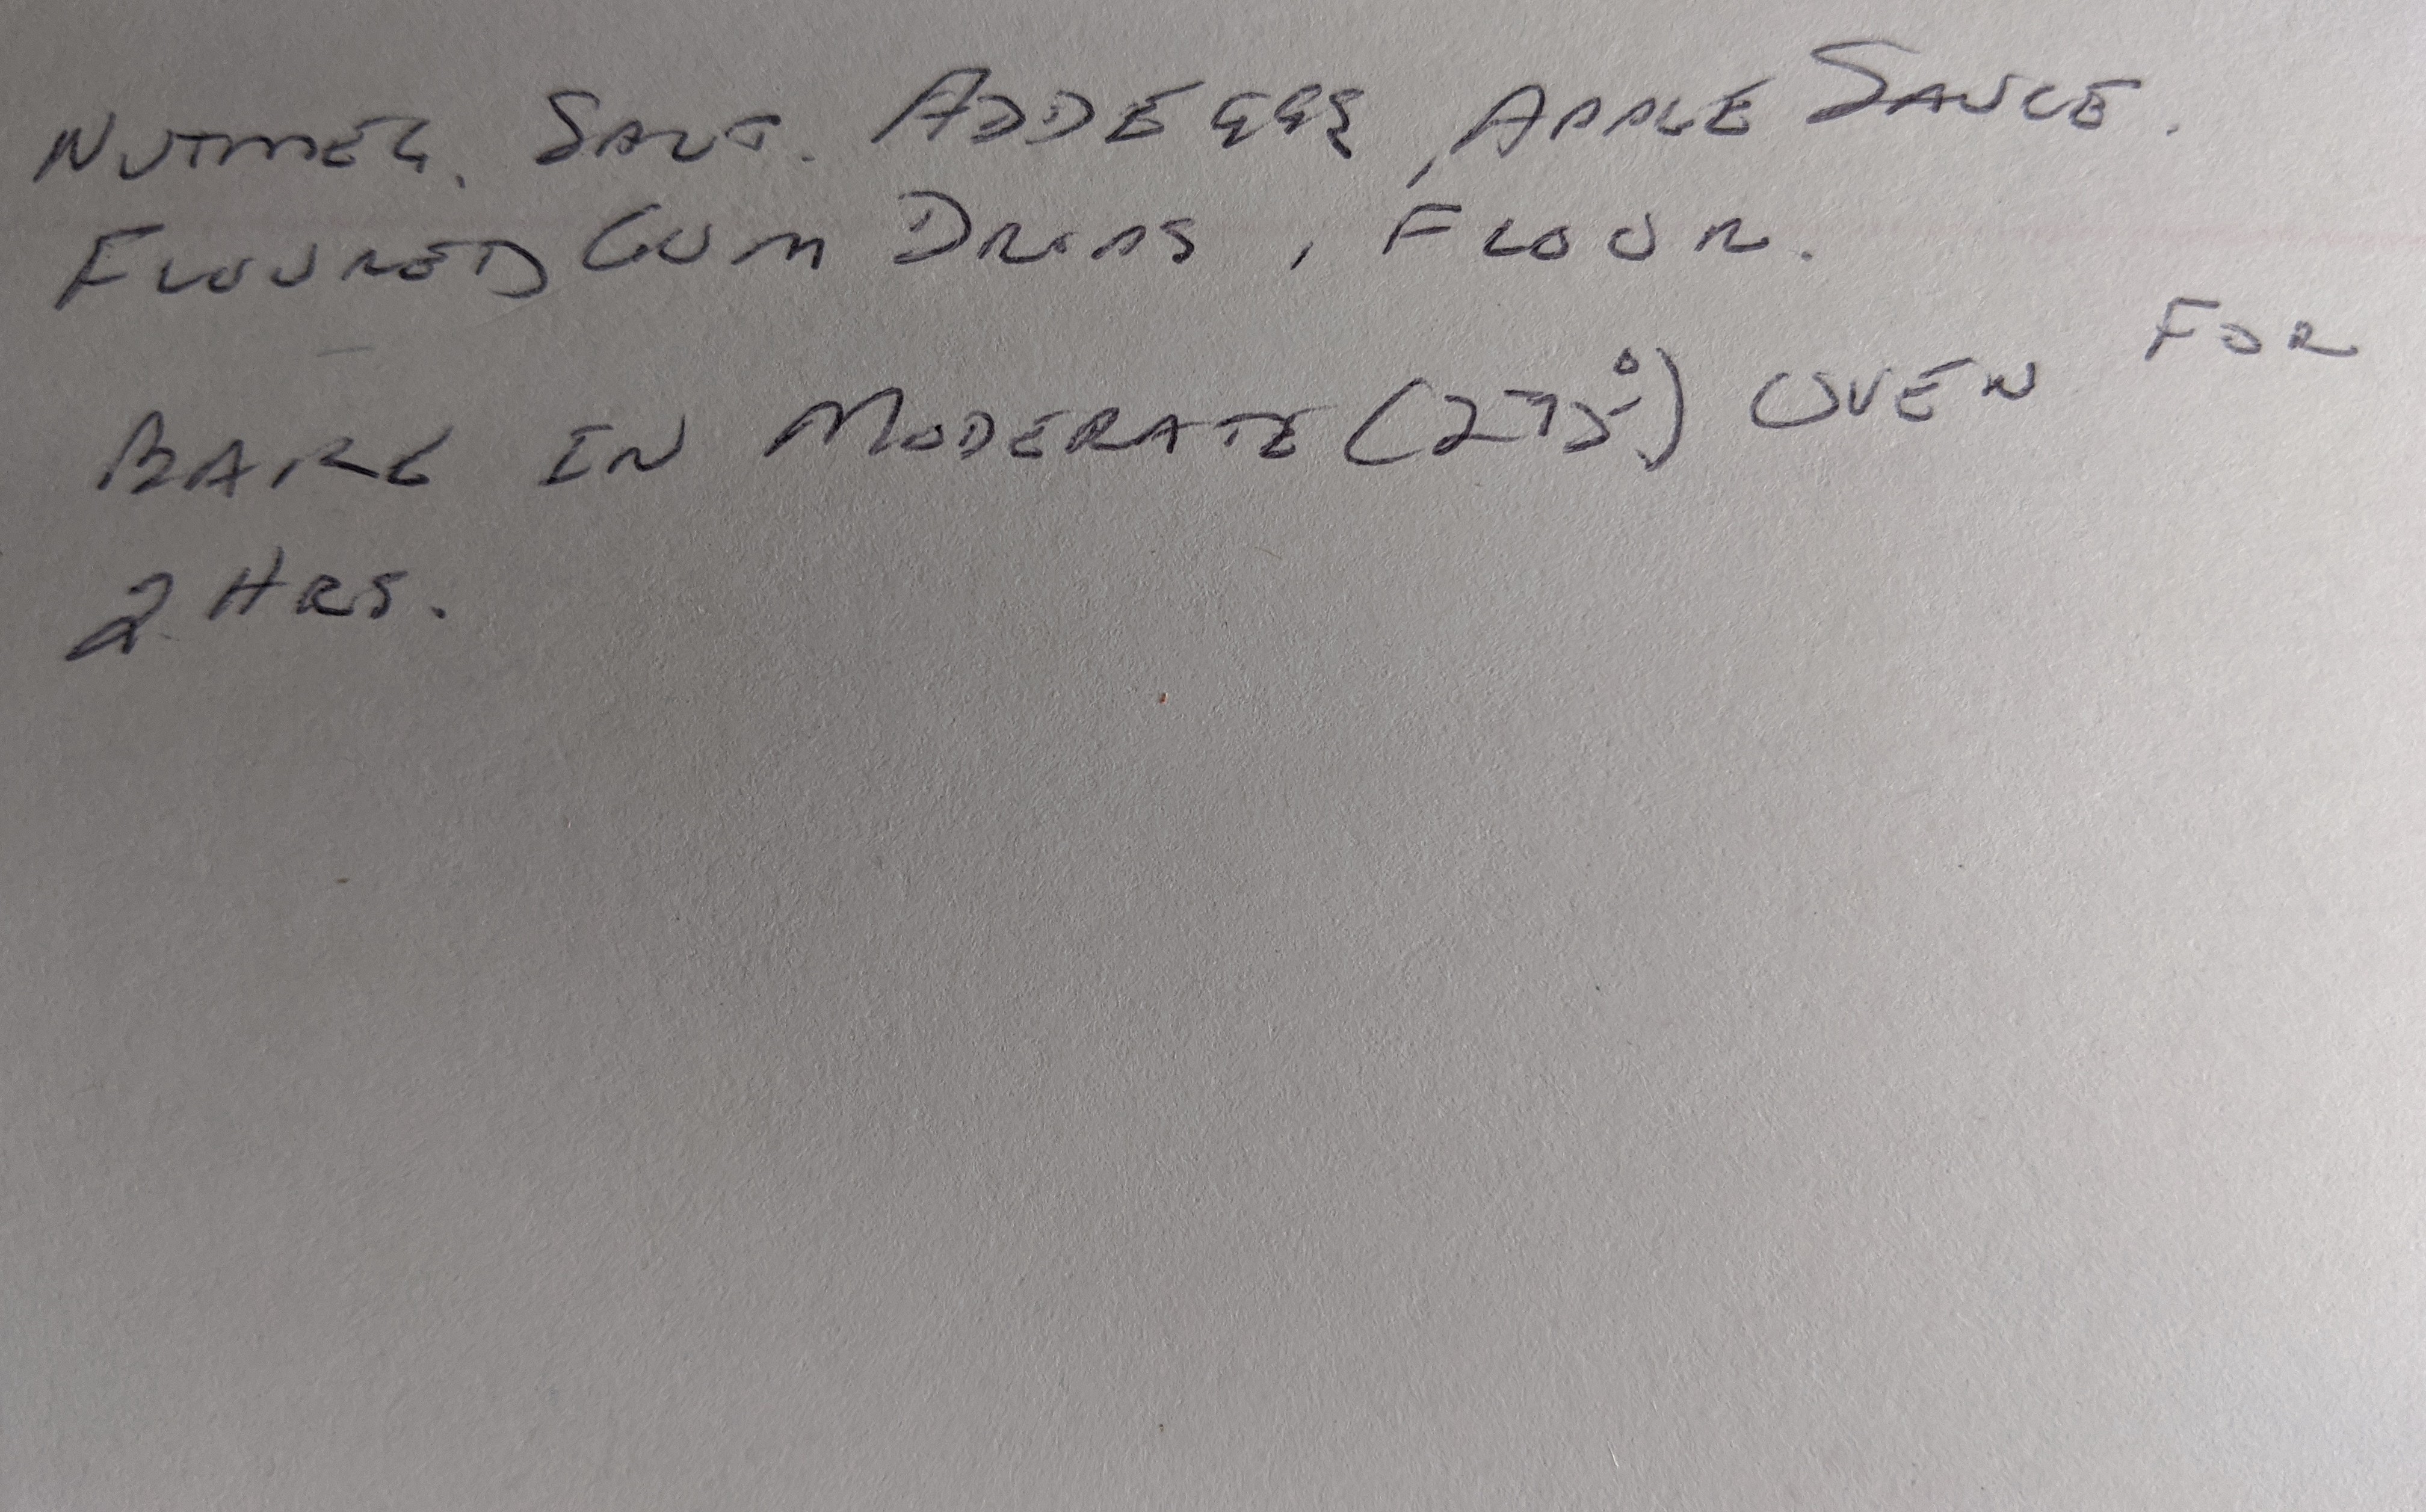 NUTMEG. SALT. ADD EGGS, APPLE SAUCE.
FLOURED GUM DROPS, FLOUR.
BAKE IN MODERATE (275°) OVEN FOR
2 HRS.